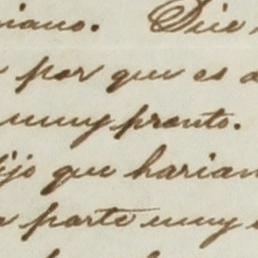 iano. Dice
por que es
muy pronto.
dijo que harian
parte muy